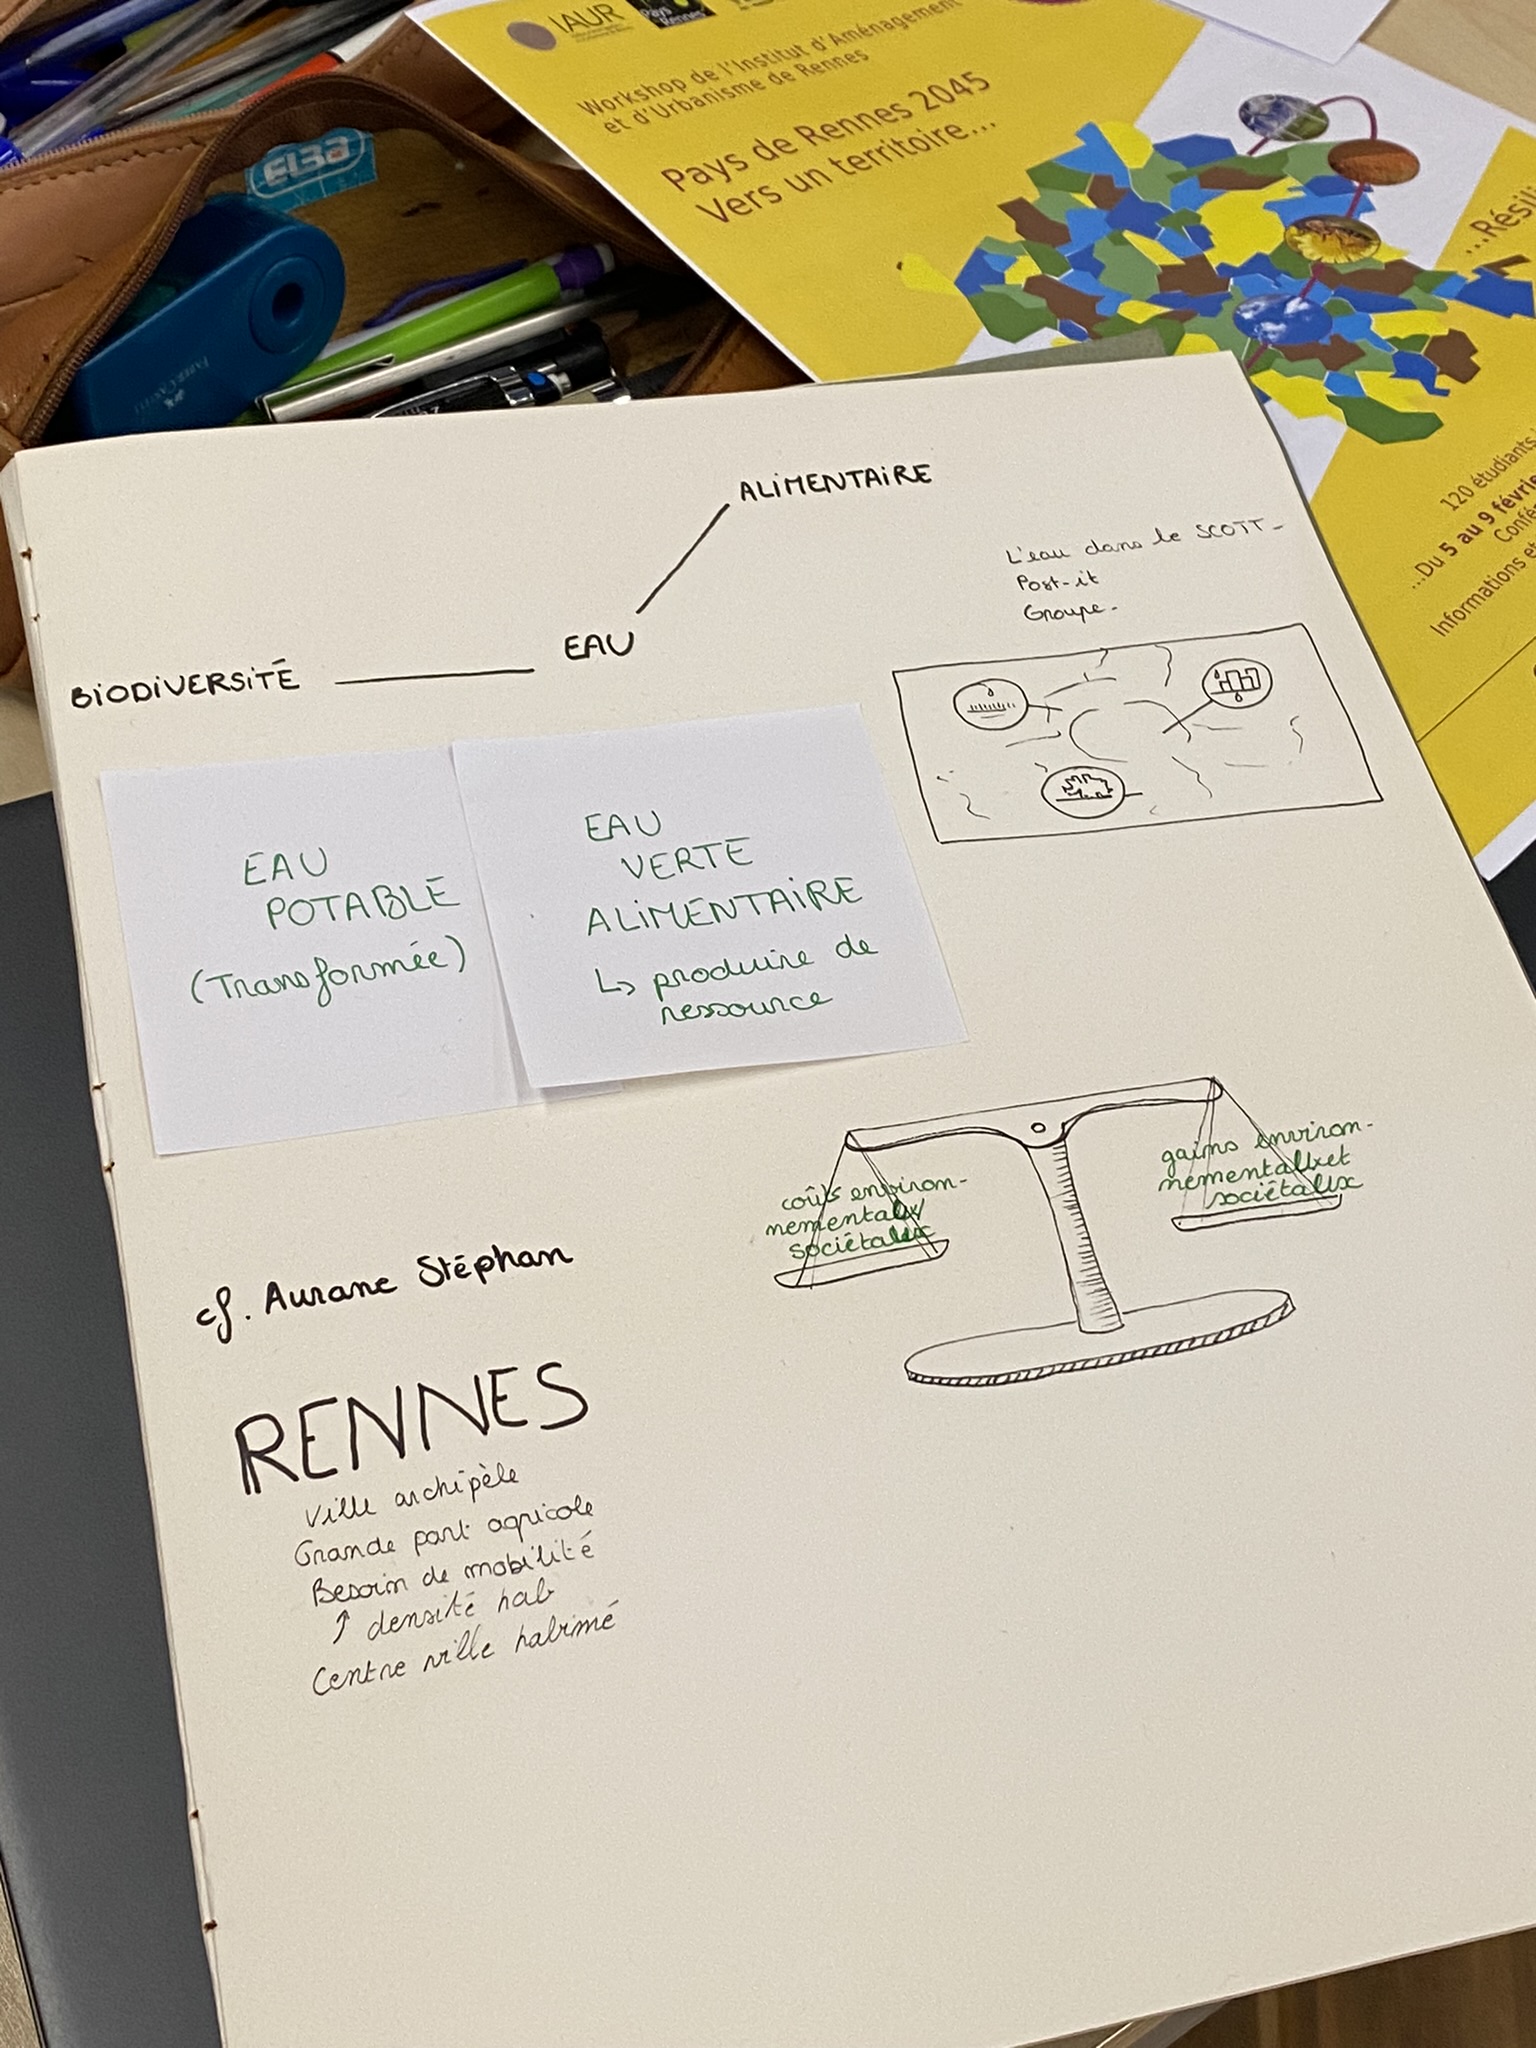 IAUR
Pays de
Rennes
Workshop de l'Institut d'Aménagement
et d'Urbanisme de Rennes
Pays de Rennes 2045
Vers un territoire...
...Résil
120 étudiants
...Du 5 au 9 févrie
Confé
Informations et
ELBA
FABER-CASTELL
ALIMENTAIRE
EAU
BIODIVERSITÉ
L'eau dans le SCOTT-
Post-it
Groupe-
EAU
POTABLE
(Transformée)
EAU
VERTE
ALIMENTAIRE
↳ produire de
ressource
coûts environ-
nementaux/
sociétaux
gains environ-
nementaux et
sociétaux
cf. Aurane Stéphan
RENNES
Ville archipèle
Grande part agricole
Besoin de mobilité
↑ densité hab
Centre ville